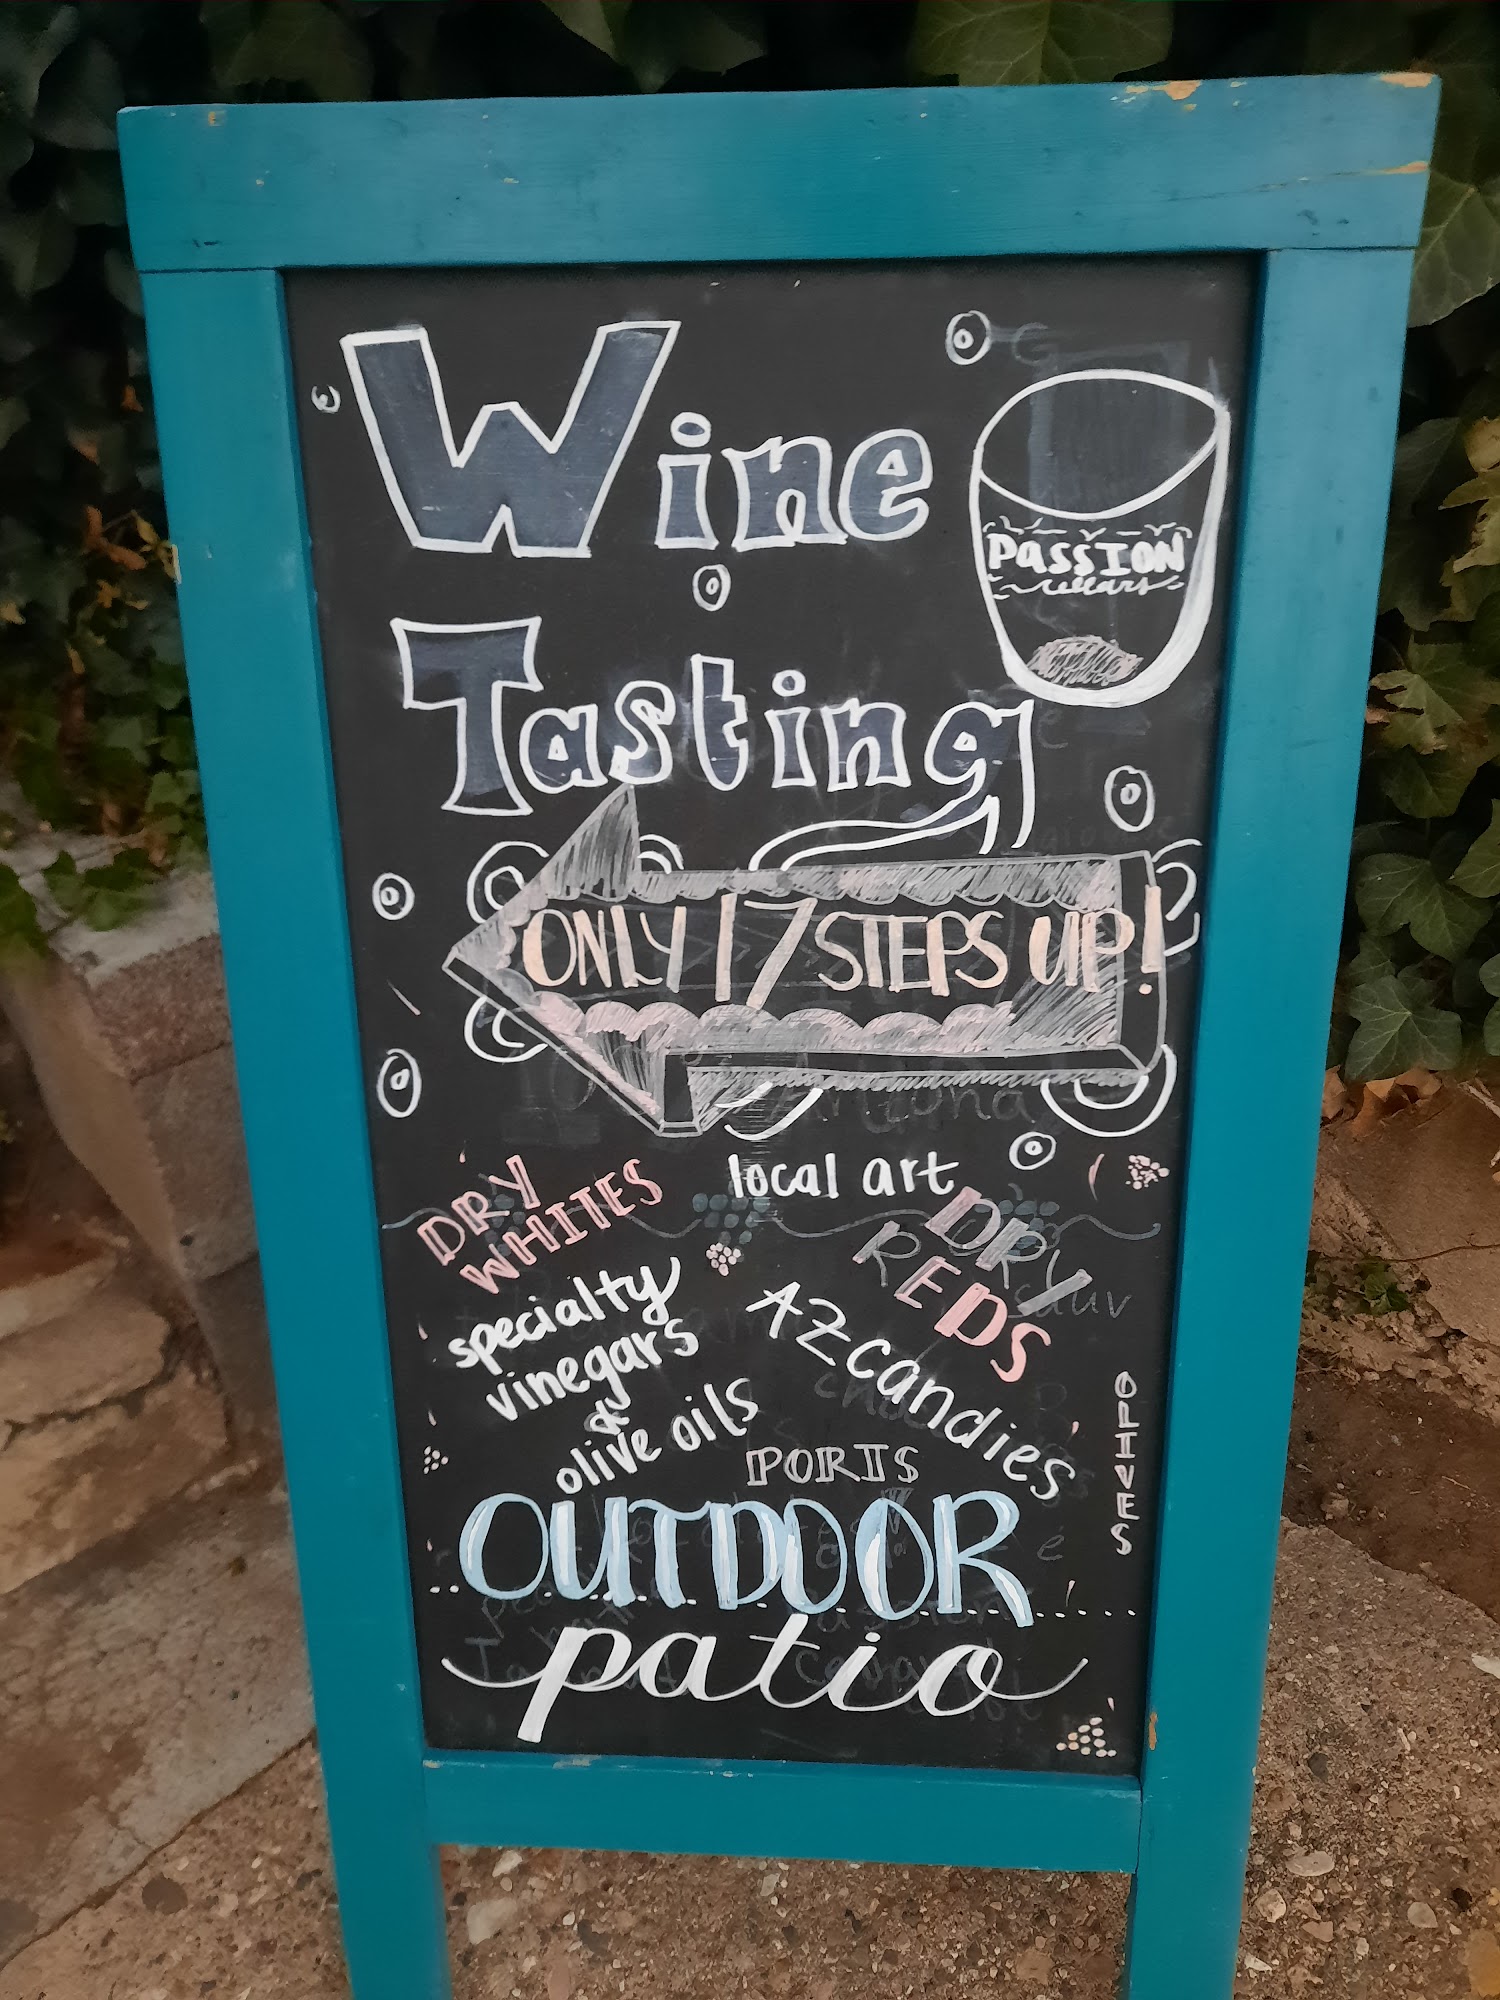 Wine
PASSION
cellars
Tasting
ONLY 17 STEPS UP!
local art
DRY
WHITES
DRY
REDS
specialty
vinegars
&
olive oils
AZ candies
PORTS
OLIVES
OUTDOOR
patio